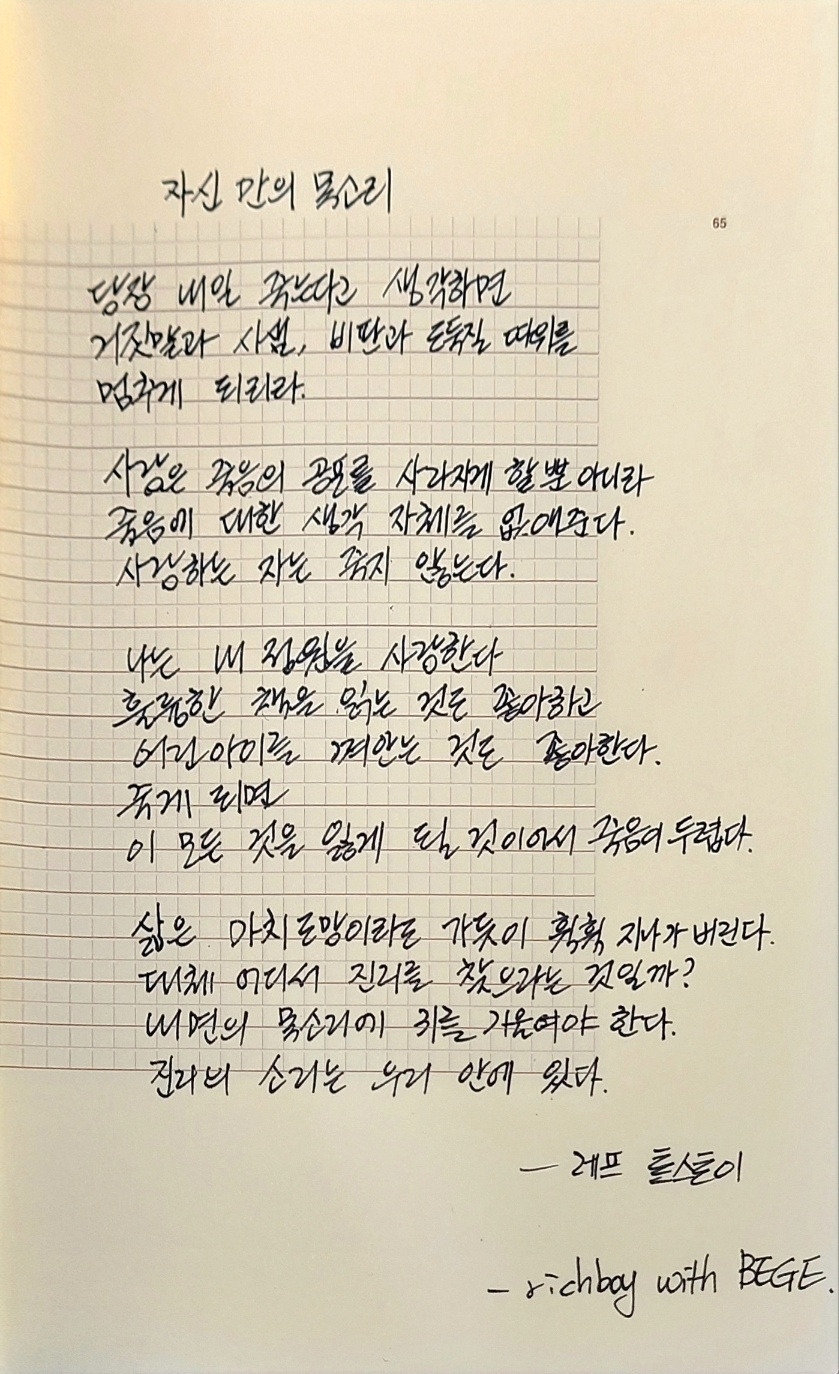 자신 만의 목소리
65
당장 내일 죽는다고 생각하면
거짓말과 사샘, 비판과 도둑질 따위를
멈추게 되리라.
사랑은 죽음의 공포를 사라지게 할 뿐 아니라
죽음에 대한 생각 자체를 없애준다.
사랑하는 자는 죽지 않는다.
나는 내 정원을 사랑한다
훌륭한 책을 읽는 것도 좋아하고
어린아이를 껴안는 것도 좋아한다.
죽게 되면
이 모든 것을 잃게 될 것이어서 죽음이 두렵다.
삶은 마치 도망이라도 가듯이 휙휙 지나가 버린다.
대체 어디서 진리를 찾으라는 것일까?
내면의 목소리에 귀를 기울여야 한다.
진리의 소리는 우리 안에 있다.
— 레프 톨스토이
— richboy with BEGE.